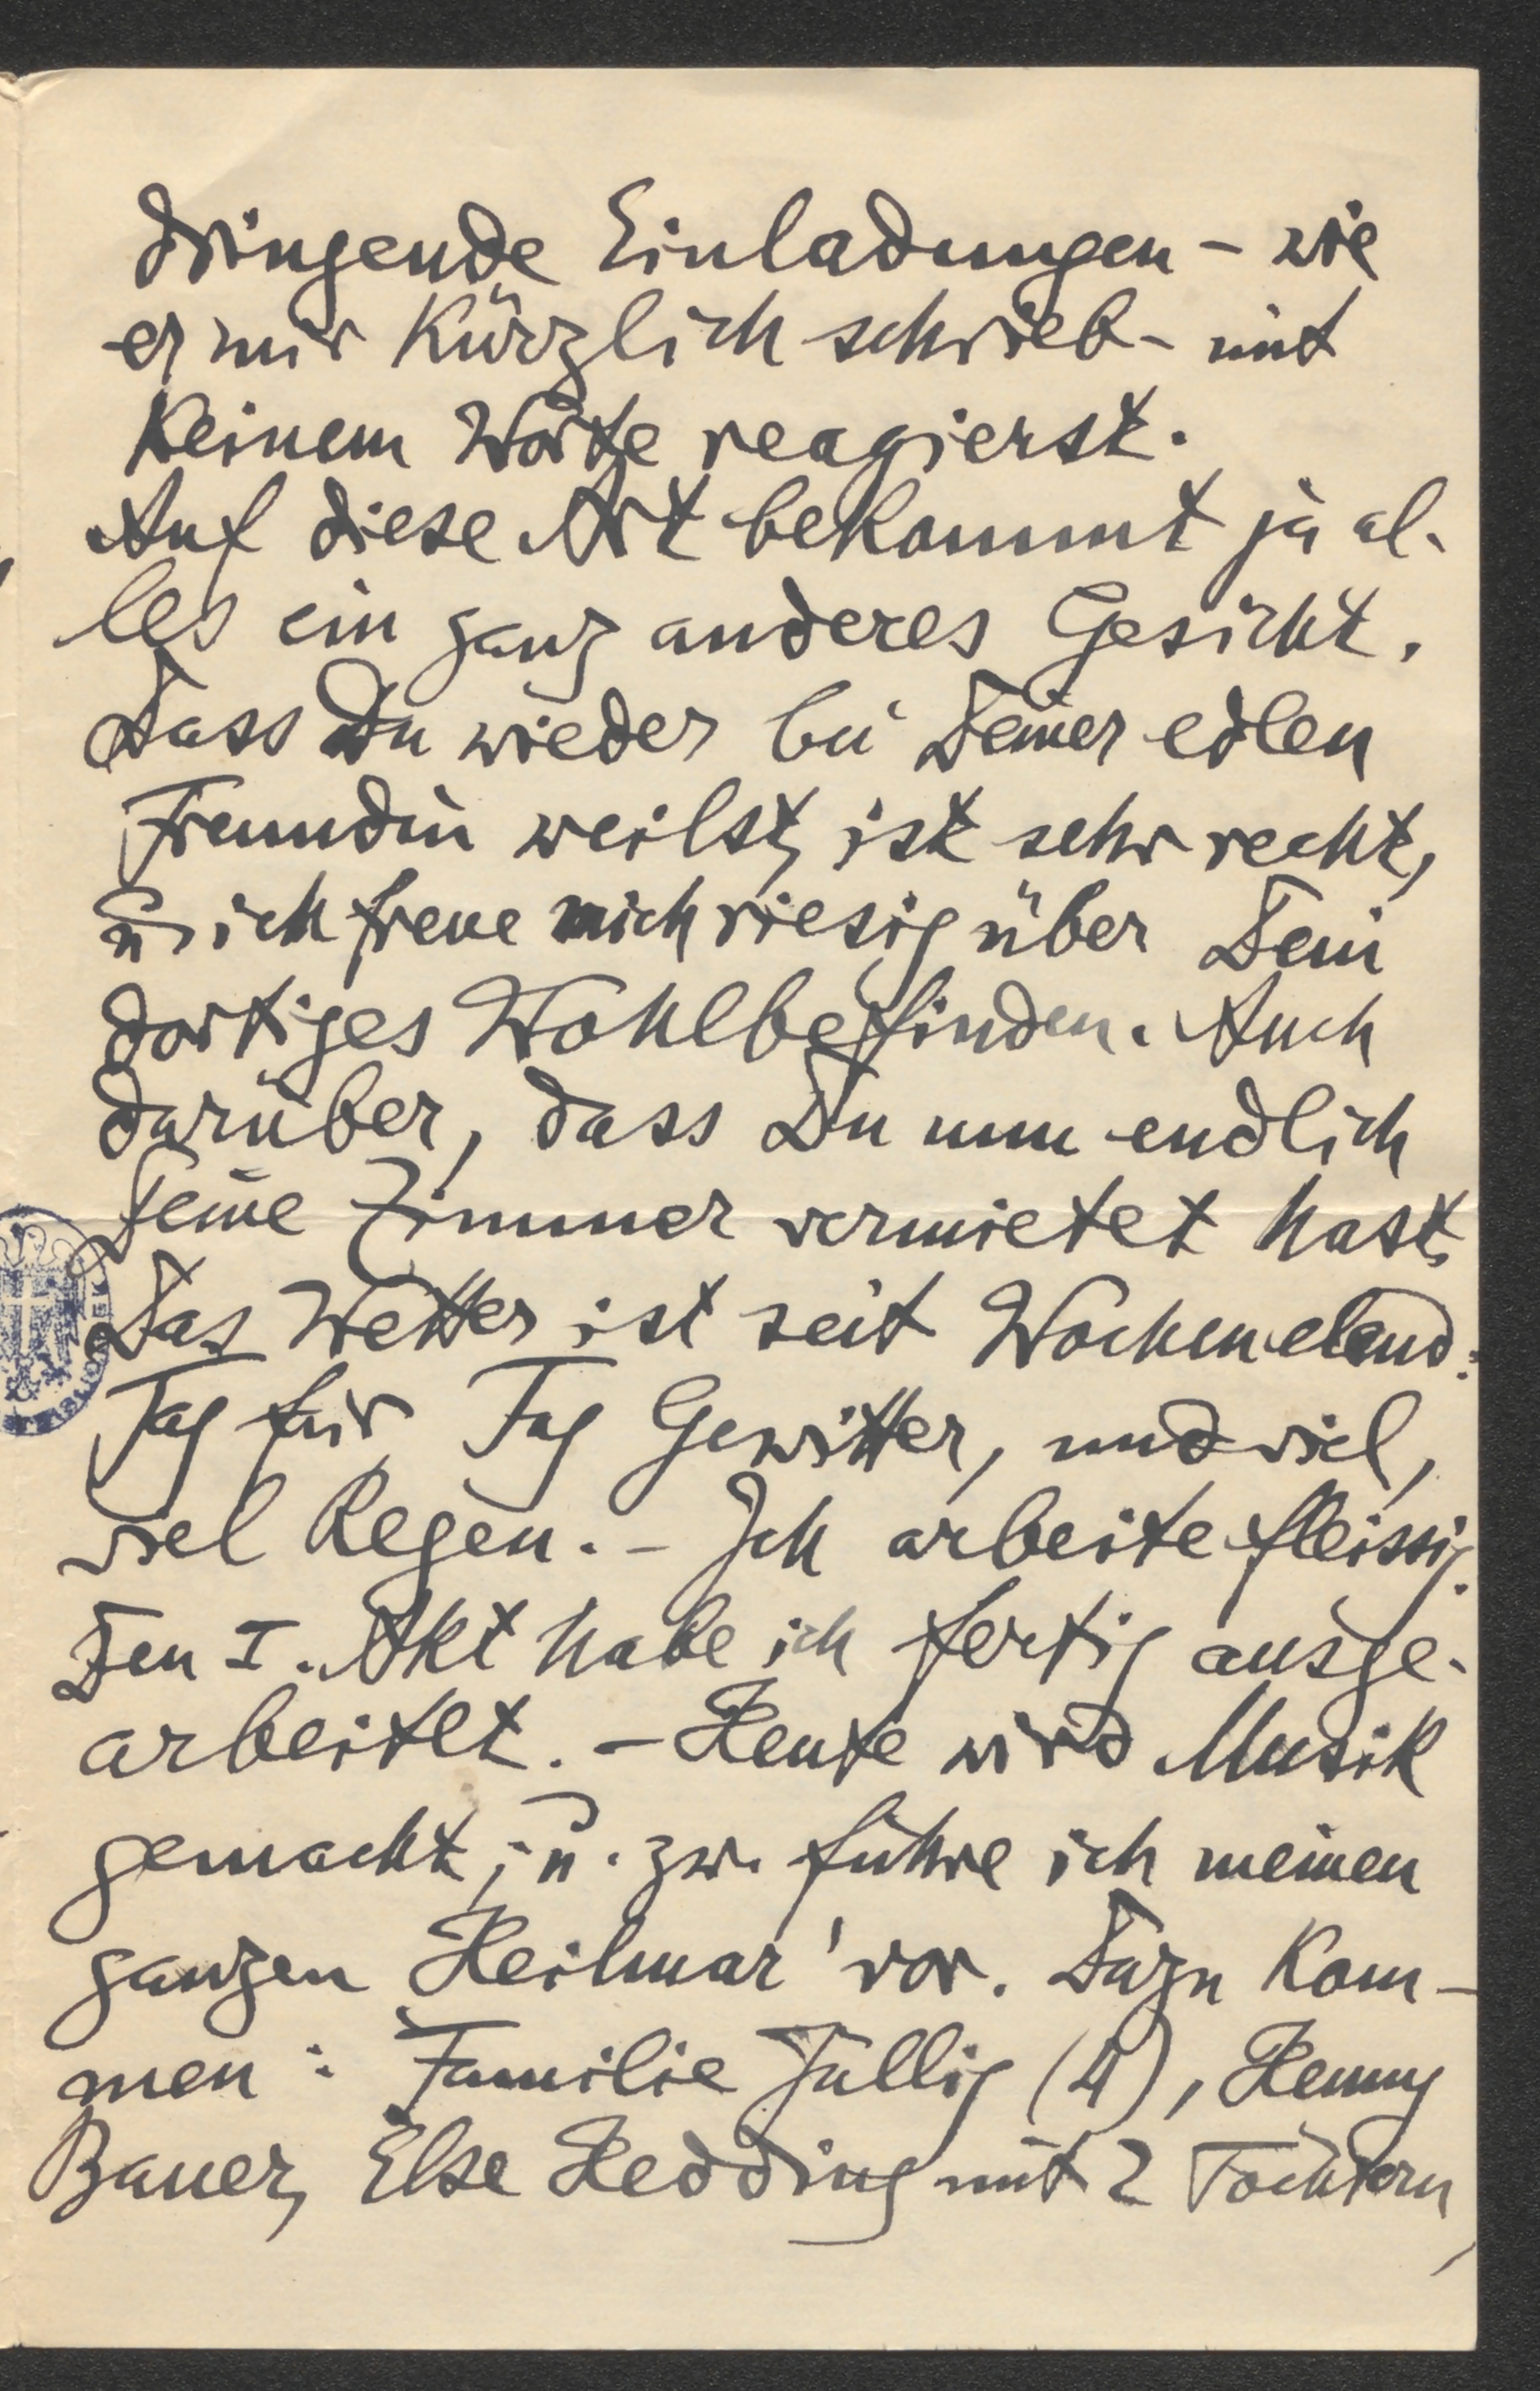 dringende Einladungen – wie
er mir kürzlich schrieb – mit
keinem Worte reagierst.
Auf diese Art bekommt ja al-
les ein ganz anderes Gesicht.
Dass Du wieder bei Deiner edlen
Freundin weilst, ist sehr recht,
u. ich freue mich riesig über Dein
dortiges Wohlbefinden. Auch
darüber, dass Du nun endlich
Deine Zimmer vermietet hast.
Das Wetter ist seit Wochen elend:
Tag für Tag Gewitter, und viel,
viel Regen. – Ich arbeite fleissig.
Den I. Akt habe ich fertig ausge-
arbeitet. – Heute wird Musik
gemacht; u. zw. führe ich meinen
ganzen Heilmar' vor. Dazu kom-
men: Familie Jüllig (4), Henny
Bauer, Else Hedding mit 2 Töchtern,